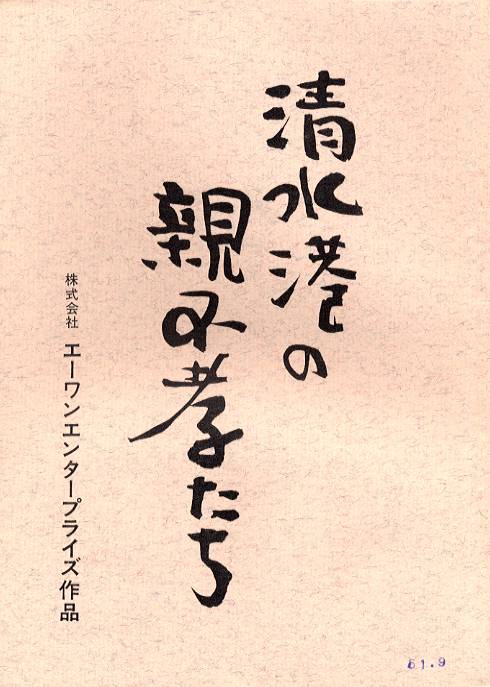 清水港の
親不孝たち
株式会社 エーワンエンタープライズ作品
61.9